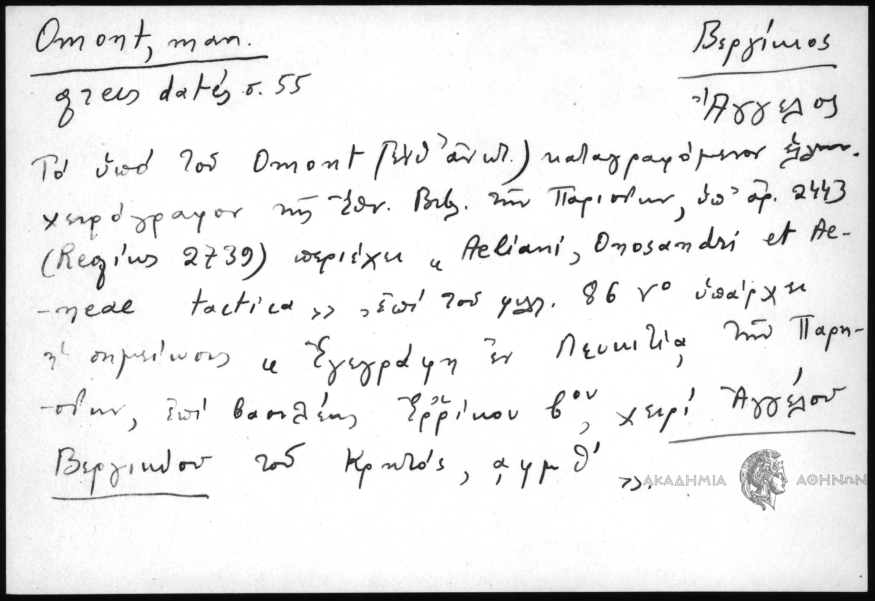 Omont, man. Βεργίκιος
grecs datés σ. 55 Ἄγγελος
Τό ὑπό τοῦ Omont (ἔνθ' ἀνωτ.) καταγραφόμενον
χειρόγραφον τῆς Ἐθν. Βιβ. τῶν Παρισίων, ὑπ' ἀρ. 2443
(Regius 2739) περιέχει « Aeliani, Onosandri et Ae-
-neae tactica », ἐπί τοῦ φυλ. 86 vο ὑπάρχει
ἡ σημείωσις « Ἐγεγράφη ἐν Λευκιτίᾳ, τῶν Παρη-
-σίων, ἐπί βασιλέως Ἐρρίκου βου, χειρί Ἀγγέλου
Βεργικίου τοῦ Κρητός, ͵αφμθʹ ».
ΑΚΑΔΗΜΙΑ ΑΘΗΝΩΝ